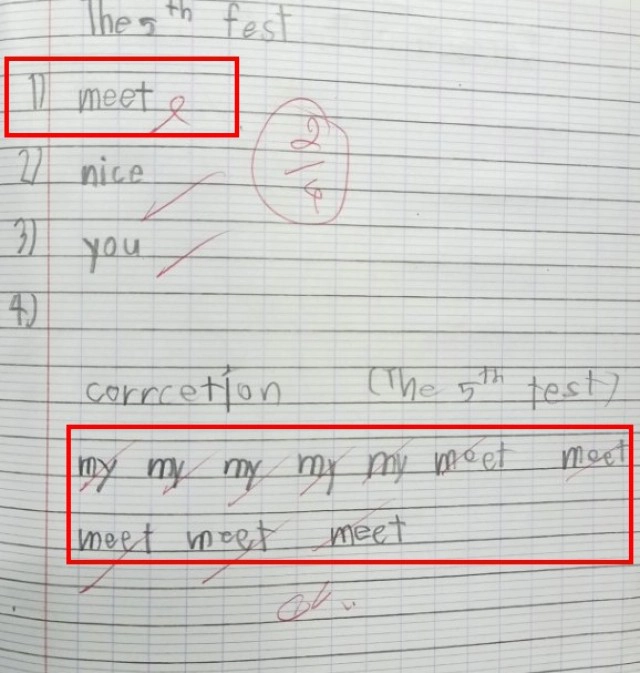 The 5th test
1) meet
2) nice
2
4
3) you
4)
corrcetion (The 5th test)
my my my my my meet meet
meet meet meet
ok